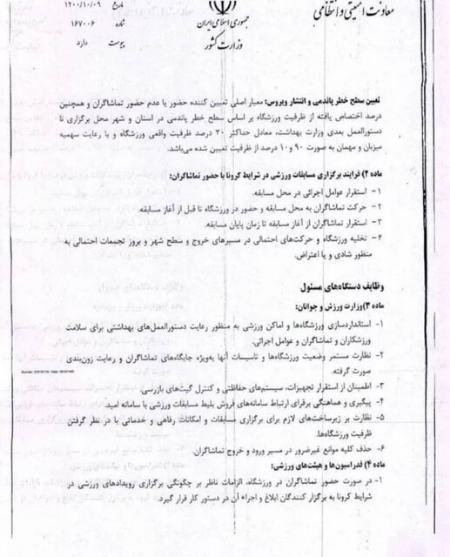 معاونت امنیتی و انتظامی
جمهوری اسلامی ایران
وزارت کشور
تاریخ ۱۴۰۰/۱۰/۰۹
شماره ۱۶۷۰۰۶
پیوست دارد
تعیین سطح خطر پاندمی و انتشار ویروس: معیار اصلی تعیین کننده حضور یا عدم حضور تماشاگران و همچنین
درصد اختصاص یافته از ظرفیت ورزشگاه بر اساس سطح خطر پاندمی در استان و شهر محل برگزاری تا
دستورالعمل بعدی وزارت بهداشت، معادل حداکثر ۳۰ درصد ظرفیت واقعی ورزشگاه و با رعایت سهمیه
میزبان و مهمان به صورت ۹۰ و ۱۰ درصد از ظرفیت تعیین شده می‌باشد.
ماده ۲) فرایند برگزاری مسابقات ورزشی در شرایط کرونا با حضور تماشاگران:
۱- استقرار عوامل اجرائی در محل مسابقه.
۲- حرکت تماشاگران به محل مسابقه و حضور در ورزشگاه تا قبل از آغاز مسابقه.
۳- استقرار تماشاگران از آغاز مسابقه تا زمان پایان مسابقه.
۴- تخلیه ورزشگاه و حرکت‌های احتمالی در مسیرهای خروج و سطح شهر و بروز تجمعات احتمالی به
منظور شادی و یا اعتراض.
وظایف دستگاه‌های مسئول
ماده ۳) وزارت ورزش و جوانان:
۱- استانداردسازی ورزشگاه‌ها و اماکن ورزشی به منظور رعایت دستورالعمل‌های بهداشتی برای سلامت
ورزشکاران و تماشاگران و عوامل اجرائی.
۲- نظارت مستمر وضعیت ورزشگاه‌ها و تاسیسات آنها به‌ویژه جایگاه‌های تماشاگران و رعایت زون‌بندی
صورت گرفته.
۳- اطمینان از استقرار تجهیزات، سیستم‌های حفاظتی و کنترل گیت‌های بازرسی.
۴- پیگیری و هماهنگی برقرای ارتباط سامانه‌های فروش بلیط مسابقات ورزشی با سامانه امید.
۵- نظارت بر زیرساخت‌های لازم برای برگزاری مسابقات و امکانات رفاهی و خدماتی با در نظر گرفتن
ظرفیت ورزشگاه‌ها.
۶- حذف کلیه موانع غیرضرور در مسیر ورود و خروج تماشاگران.
ماده ۴) فدراسیون‌ها و هیئت‌های ورزشی:
۱- در صورت حضور تماشاگران در ورزشگاه، الزامات ناظر بر چگونگی برگزاری رویدادهای ورزشی در
شرایط کرونا به برگزار کنندگان ابلاغ و اجراء آن در دستور کار قرار گیرد.